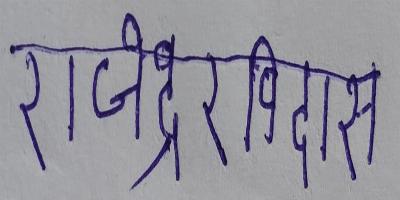 राजेंद्र रविदास